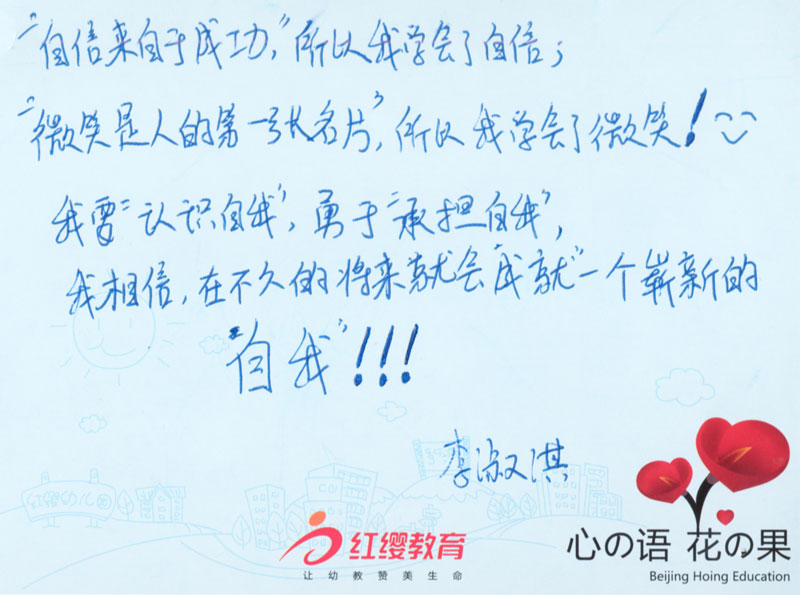 “自信来自于成功,”所以我学会了自信;
“微笑是人的第一张名片”,所以我学会了微笑!
我要“认识自我”,勇于“承担自我”,
我相信,在不久的将来就会“成就”一个崭新的
“自我”!!!
李淑淇
红缨幼儿园
红缨教育
让幼教赞美生命
心の语 花の果
Beijing Hoing Education